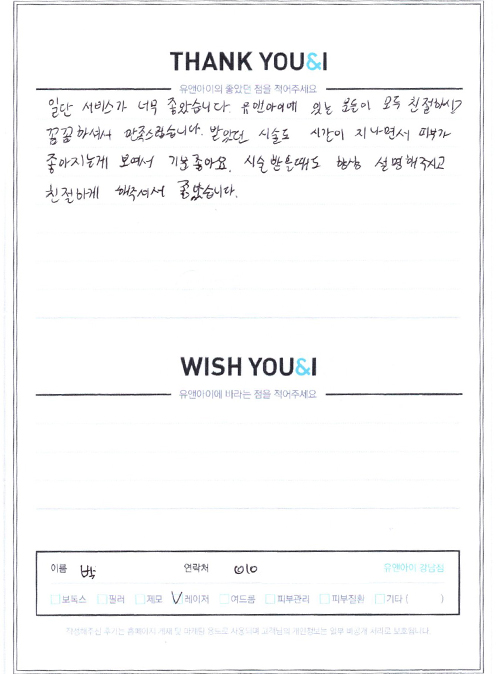 THANK YOU&I
유앤아이의 좋았던 점을 적어주세요
일단 서비스가 너무 좋았습니다. 유앤아이에 있는 분들이 모두 친절하시고
꼼꼼하셔서 만족스럽습니다. 받았던 시술도 시간이 지나면서 피부가
좋아지는게 보여서 기분좋아요. 시술받을때도 항상 설명해주시고
친절하게 해주셔서 좋았습니다.
WISH YOU&I
유앤아이에 바라는 점을 적어주세요
이름 박 연락처 010 유앤아이 강남점
보톡스 필러 제모 V 레이저 여드름 피부관리 피부질환 기타 ( )
작성해주신 후기는 홈페이지 게재 및 마케팅 용도로 사용되며 고객님의 개인정보는 일부 비공개 처리로 보호됩니다